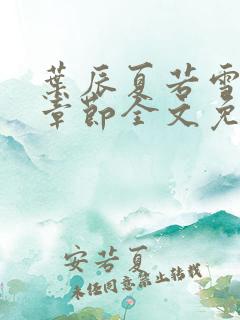 葉辰夏若雪
章節全文免
安若夏
未经同意禁止转载